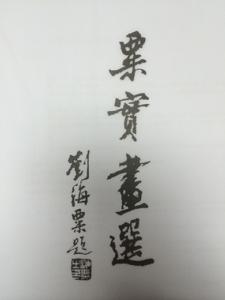 粟實畫選
劉海粟題